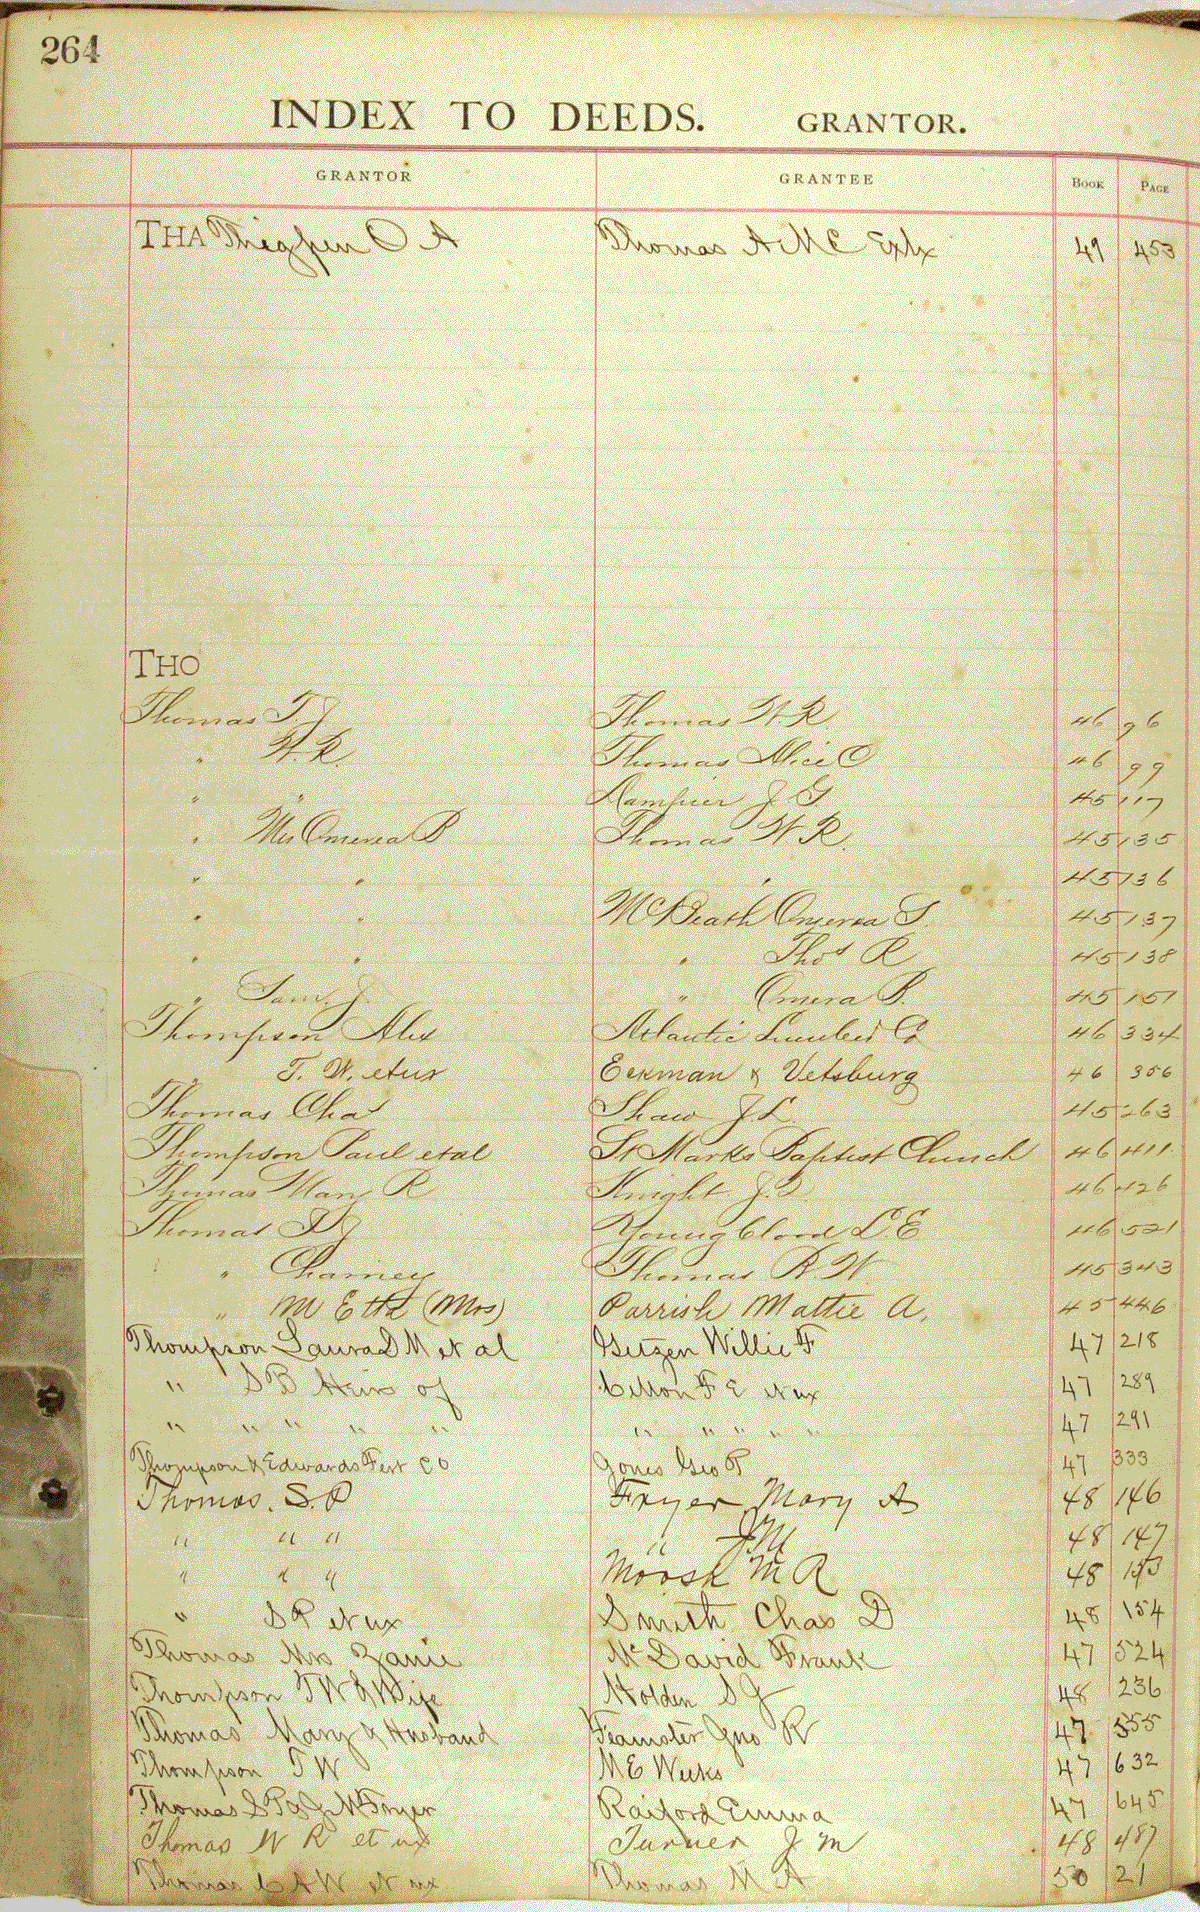 264
INDEX TO DEEDS. GRANTOR.
GRANTOR GRANTEE BOOK PAGE
THA Thigpen O A Thomas A M C Extx 49 453
THO
Thomas T. J Thomas W R 46 96
" W. R. Thomas Alice C 46 99
" " Dampier J G 45 117
" Mrs Omerea B Thomas W R. 45 135
" " " 45 136
" " McBeath Omerea S. 45 137
" " " Thos R 45 138
" Sam. J. " Omera B. 45 151
Thompson Alex Atlantic Lumber Co 46 334
T. W. et ux Eckman & Vetsburg 46 356
Thomas Chas Shaw J. L. 45 263
Thompson Paul et al St Marks Baptist Church 46 411
Thomas Mary R Knight J. 46 426
Thomas J Youngblood L. E 46 521
" Charney Thomas R. W 45 343
" M Etta (Mrs) Parrish Mattie A. 45 446
Thompson Laura D M et al Getzen Willie F 47 218
" S B Heirs of F E et ux 47 289
" " " " " " " " " " 47 291
Thompson & Edwards Fert Co Jones Geo P 47 333
Thomas. S. P Fryer Mary A 48 146
" " " " J. M 48 147
" " " M R 48 153
" S P et ux Smith Chas D 48 154
Thomas Mrs Zanie McDavid Frank 47 524
Thompson T W & Wife Holden S J 48 236
Thomas Mary & Husband Feamster Jno R 47 555
Thompson T W M E Weeks 47 632
Thomas S P & J M Fryer Raiford Emma 47 645
Thomas W R et ux Turner J M 48 487
Thomas C A W et ux Thomas M A 50 21